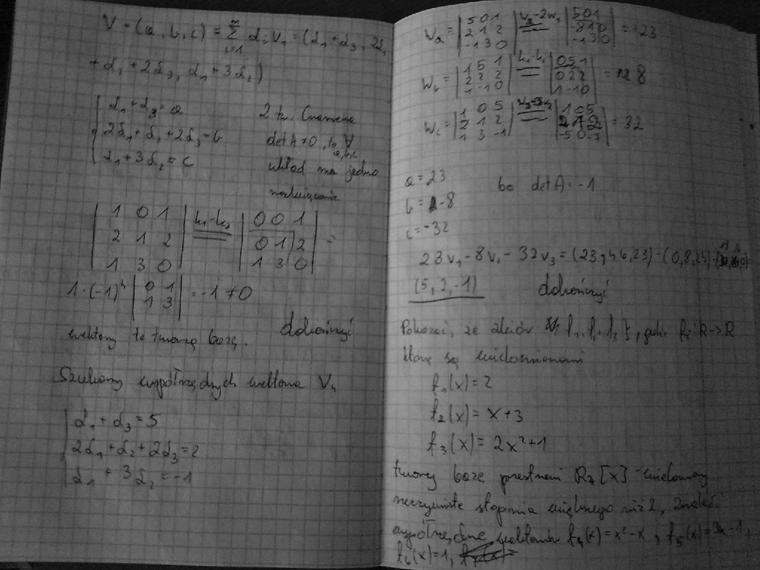 V = (a, b, c) = ∑ αᵢ vᵢ = (α₁ + α₃, 2α₁
+ α₂ + 2α₃, α₁ + 3α₂)
α₁ + α₃ = a
2α₁ + α₂ + 2α₃ = b
α₁ + 3α₂ = c
Z tw. Cramera
det A ≠ 0, to ∀ a,b,c
układ ma jedno
rozwiązanie
| 1 0 1 | k₁-k₃ | 0 0 1 |
| 2 1 2 | = | 0 1 2 | =
| 1 3 0 | | 1 3 0 |
1·(-1)⁴ | 0 1 | = -1 ≠ 0
| 1 3 |
wektory te tworzą bazę. dokończyć
Szukamy współrzędnych wektora V₄
α₁ + α₃ = 5
2α₁ + α₂ + 2α₃ = 2
α₁ + 3α₂ = -1
Wa = | 5 0 1 | = | 5 0 1 | = -23
| 2 1 2 | | -8 1 0 |
| -1 3 0 | | -1 3 0 |
Wb = | 1 5 1 | = | 0 5 1 | = 8
| 2 2 2 | | 0 2 2 |
| 1 -1 0 | | 1 -1 0 |
Wc = | 1 0 5 | = | 1 0 5 | = 32
| 2 1 2 |
| 1 3 -1 | | -5 0 -7 |
a = 23 bo det A = -1
b = -8
c = -32
23v₁ - 8v₂ - 32v₃ = (23, 46, 23) - (0, 8, 24) -
(5, 2, -1) dokończyć
Pokazać, że zbiór { f₁, f₂, f₃ }, gdzie fᵢ: R → R
które są wielomianami
f₁(x) = 2
f₂(x) = x + 3
f₃(x) = 2x² + 1
tworzy bazę przestrzeni R₂[x] - wielomiany
rzeczywiste stopnia mniejszego niż 2, znaleźć
współrzędne wektorów f₄(x) = x² - x, f₅(x) = 3x - 1,
f₆(x) = 1,